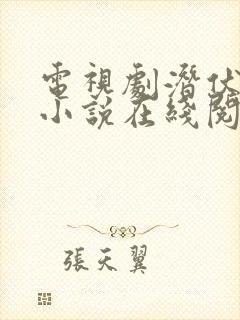 電視劇潛伏
小説在綫閱
張天翼